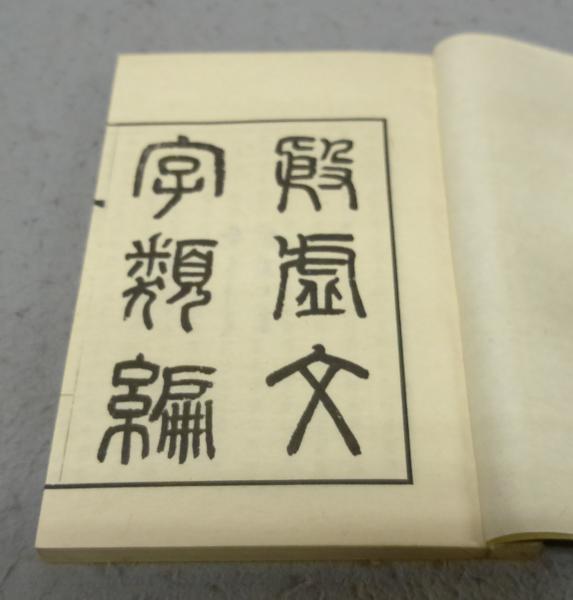 殷虛文
字類編